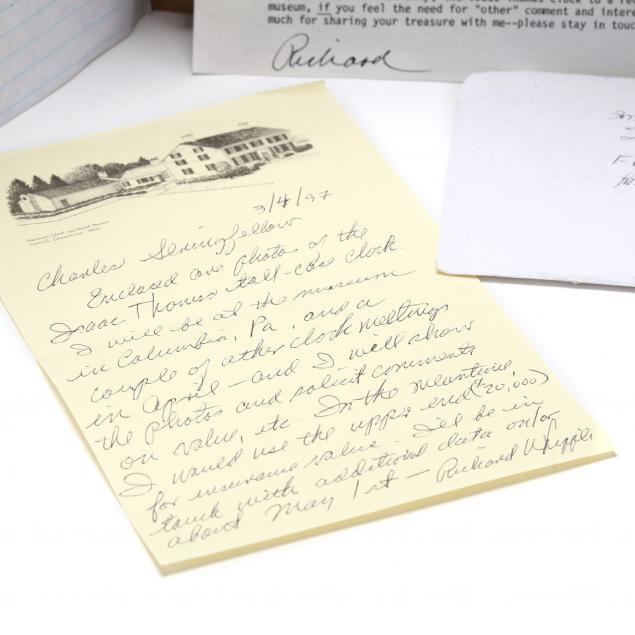 museum, if you feel the need for "other" comment and
much for sharing your treasure with me--please stay in
Richard
American Clock and Watch Museum
Bristol, Connecticut
3/4/97
Charles
Enclosed are photos of the
Isaac Thomas tall-case clock.
I will be at the museum
in Columbia, Pa, and a
couple of other clock meetings
in April – and I will show
the photos and solicit comments
on value, etc. In the meantime,
I would use the upper end ($20,000)
for insurance value. I'll be in
touch with additional data on/or
about May 1st – Richard Whipple